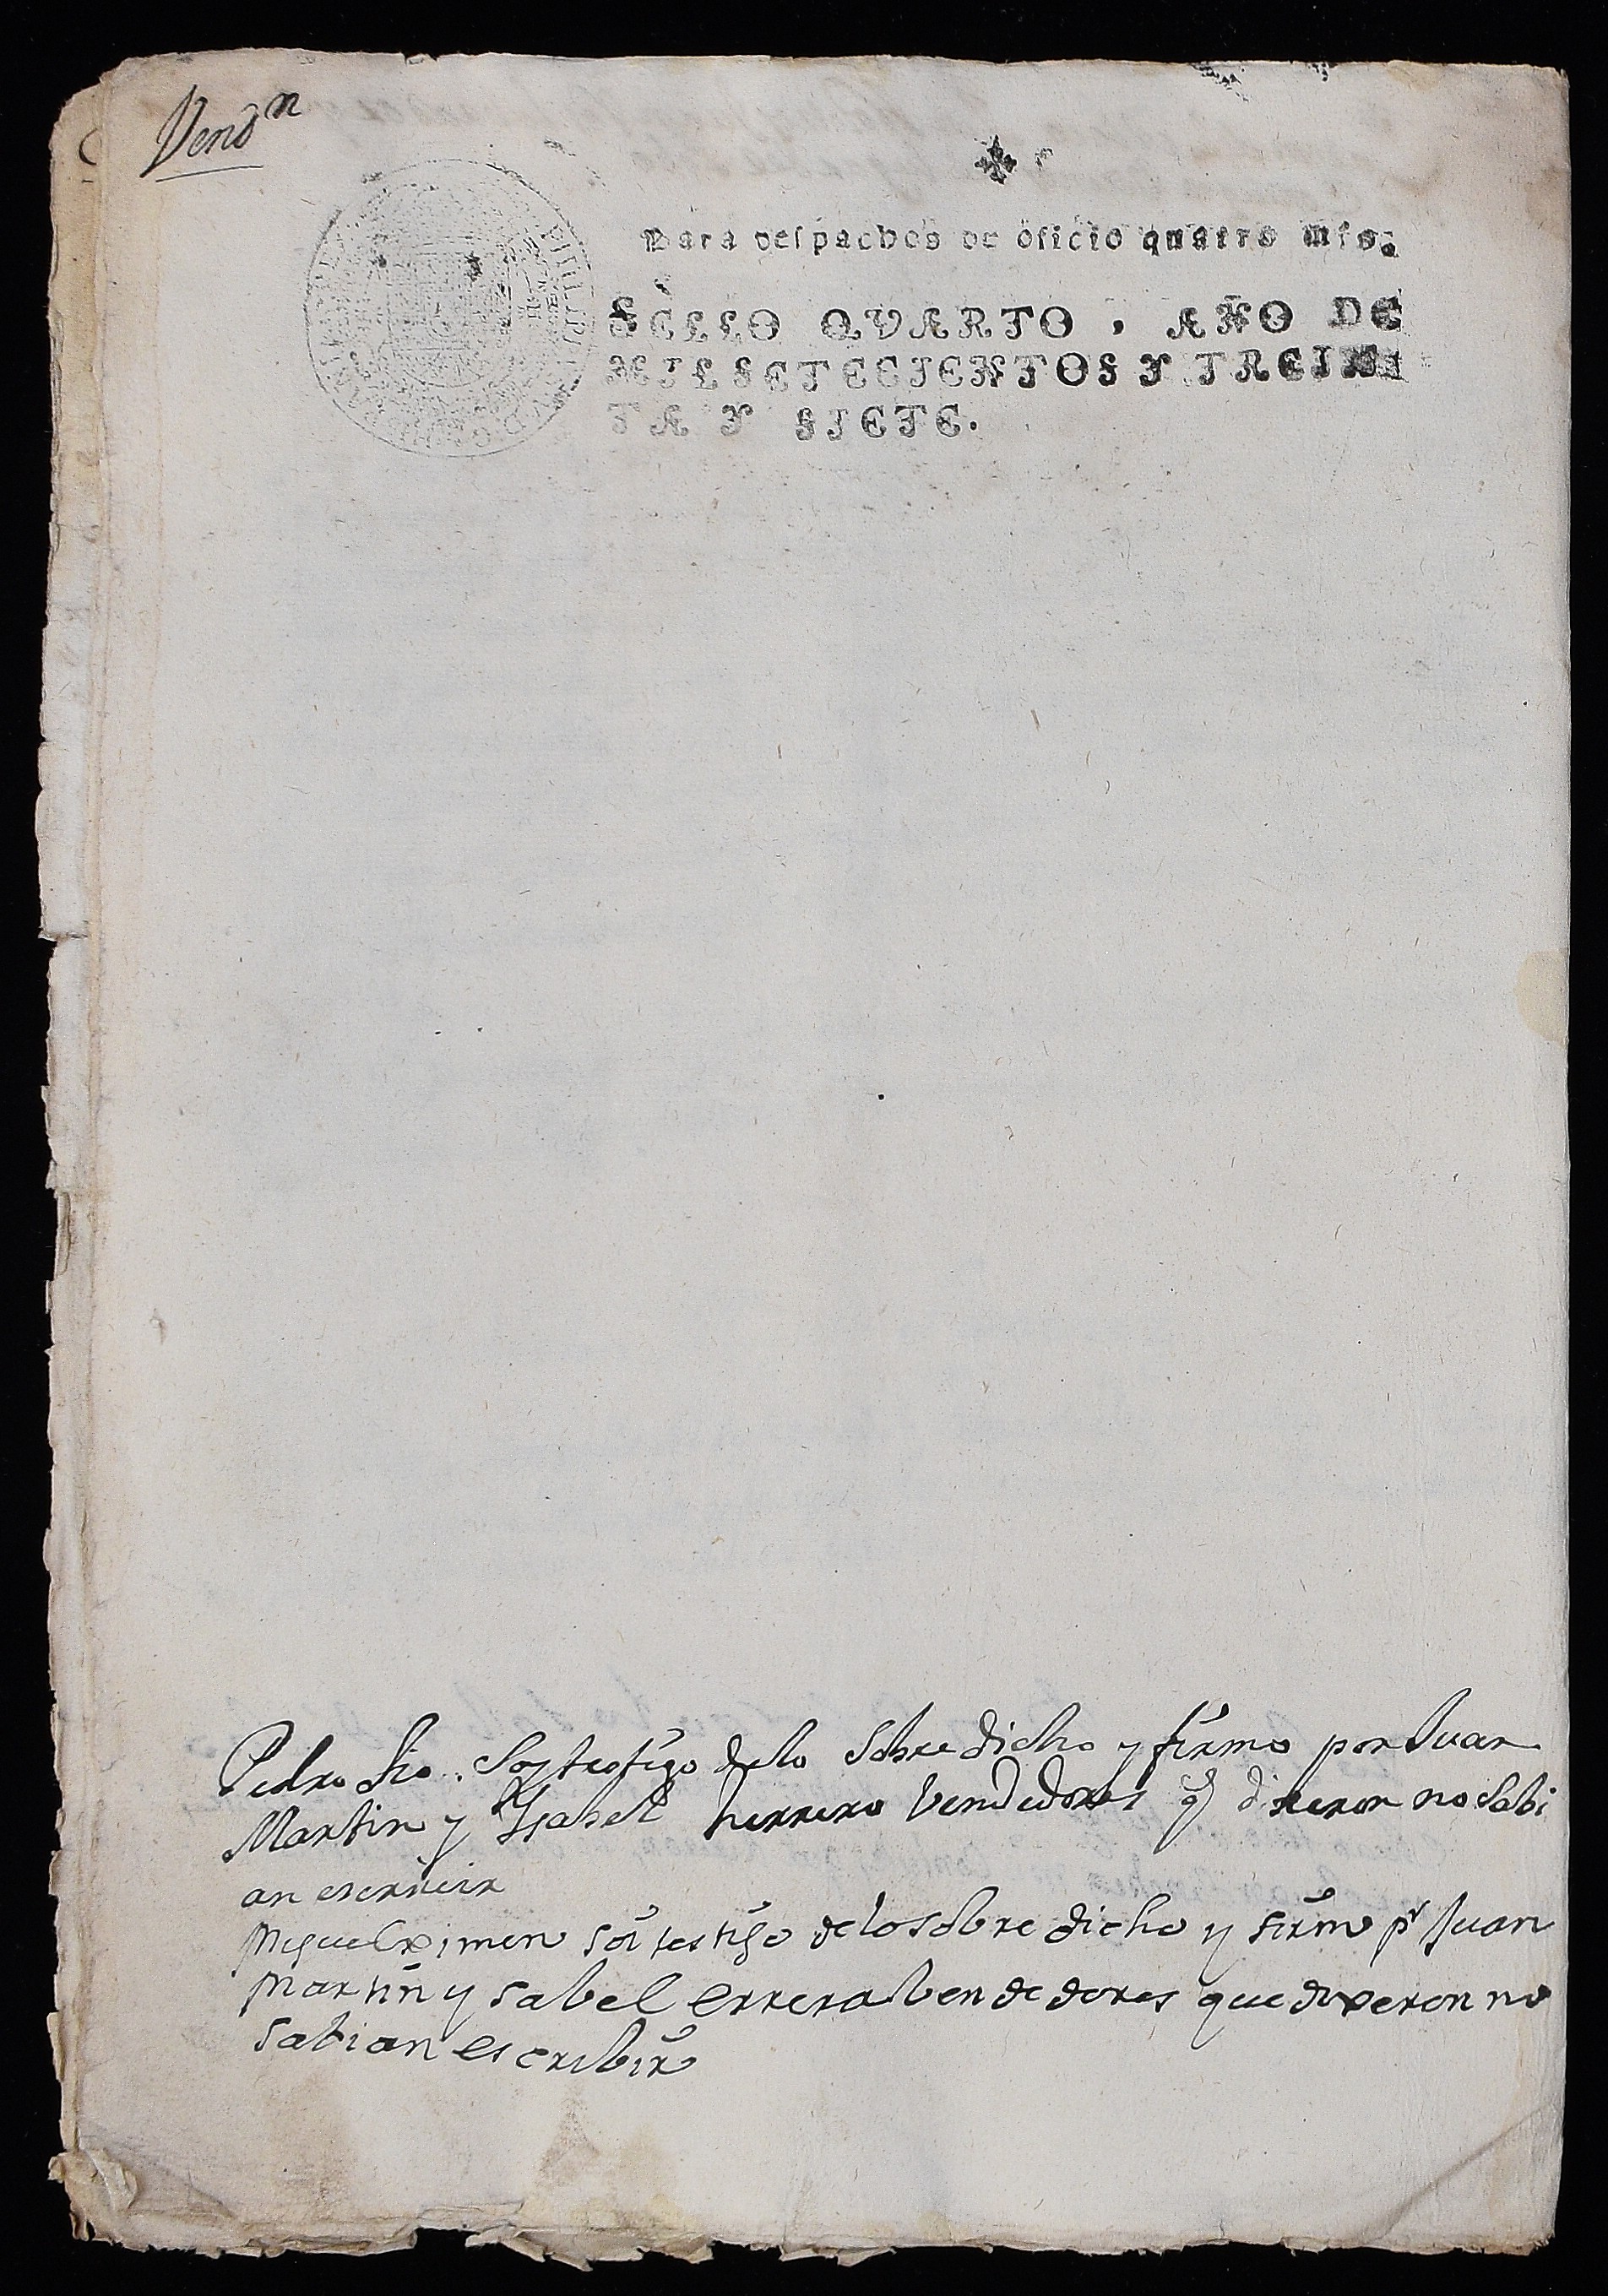 Vend.n
Para despachos de oficio quatro mrs.
SELLO QVARTO, AÑO DE
MIL SETECIENTOS Y TREIN
TA Y SIETE.
Pedro Lio. Soy testigo delo Sobre dicho y firmo por Juan
Martin y Ysabel herrera Vendedores q dixeron no Sabi
an escriuir
Miguel ximen soi testigo delo sobre dicho y firmo pr Juan
Martin y sabel errera bendedores que dixeron no
sabian escribir